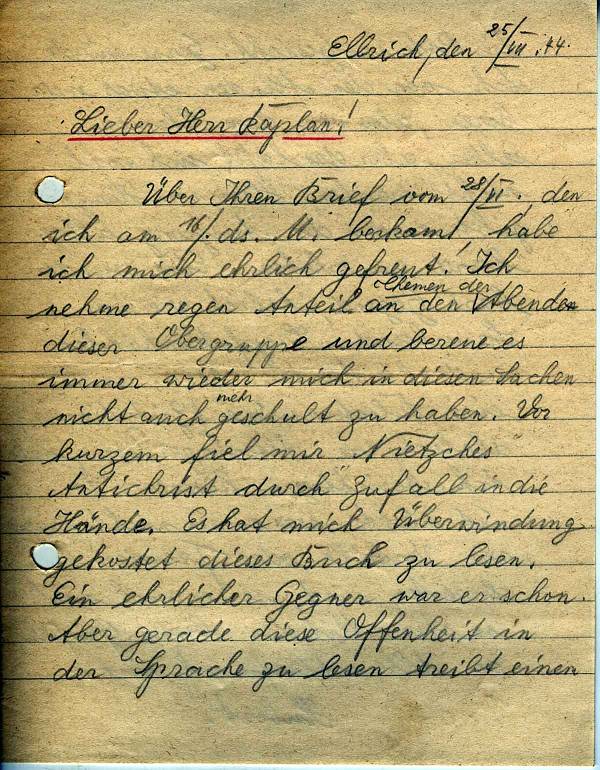 Ellrich, den 25/III. 44.
Lieber Herr Kaplan!
Über Ihren Brief vom 28/II., den
ich am 16/. ds. M. bekam, habe
ich mich ehrlich gefreut! Ich
nehme regen Anteil an den Themen der Abende
dieser Obergruppe und bereue es
immer wieder mich in diesen Sachen
nicht auch mehr geschult zu haben. Vor
kurzem fiel mir Nietzches
"Antichrist" durch Zufall in die
Hände. Es hat mich Überwindung
gekostet dieses Buch zu lesen.
Ein ehrlicher Gegner war er schon.
Aber gerade diese Offenheit in
der Sprache zu lesen treibt einen